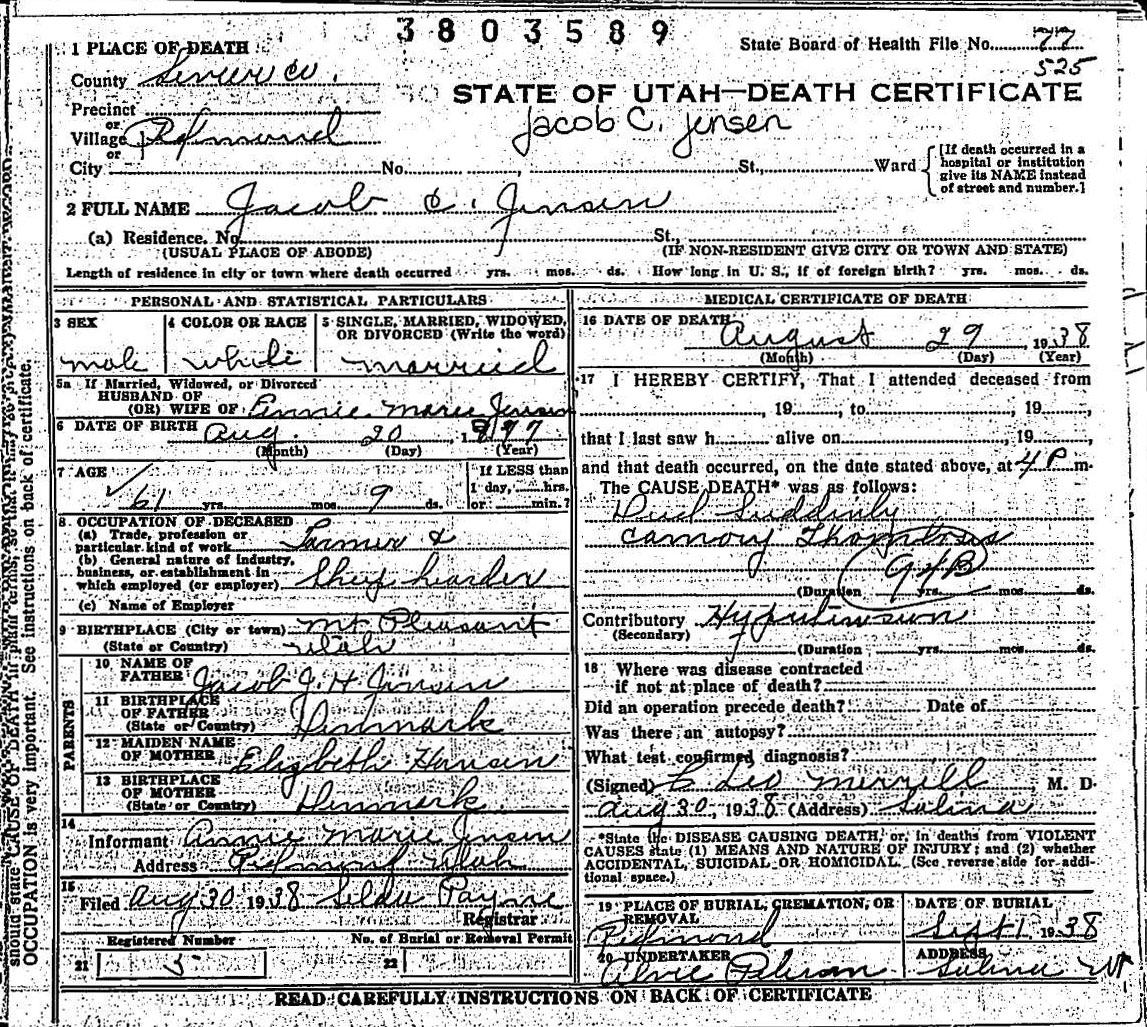 3803589
1 PLACE OF DEATH
State Board of Health File No. 77
525
County Sevier Co.
STATE OF UTAH—DEATH CERTIFICATE
Precinct
or
Jacob C. Jensen
Village Redmond
or
City No. St., Ward
[If death occurred in a hospital or institution give its NAME instead of street and number.]
2 FULL NAME Jacob C. Jensen
(a) Residence. No. St.,
(USUAL PLACE OF ABODE) (IF NON-RESIDENT GIVE CITY OR TOWN AND STATE)
Length of residence in city or town where death occurred yrs. mos. ds. How long in U. S., if of foreign birth? yrs. mos. ds.
PERSONAL AND STATISTICAL PARTICULARS
3 SEX
male
4 COLOR OR RACE
white
5 SINGLE, MARRIED, WIDOWED,
OR DIVORCED (Write the word)
married
5a If Married, Widowed, or Divorced
HUSBAND OF
(OR) WIFE OF Annie Marie Jensen
6 DATE OF BIRTH Aug. 20, 1877
(Month) (Day) (Year)
7 AGE
61 yrs. mos 9 ds.
If LESS than
1 day, hrs.
or min.?
8. OCCUPATION OF DECEASED
(a) Trade, profession or
particular kind of work Farmer &
(b) General nature of industry,
business, or establishment in
which employed (or employer) Sheep hearder
(c) Name of Employer
9 BIRTHPLACE (City or town) Mt Pleasant
(State or Country) Utah
PARENTS
10 NAME OF
FATHER Jacob J. H. Jensen
11 BIRTHPLACE
OF FATHER
(State or Country) Denmark
12 MAIDEN NAME
OF MOTHER Elizabeth Hansen
13 BIRTHPLACE
OF MOTHER
(State or Country) Denmark
14
Informant Annie Marie Jensen
Address Redmond Utah
15
Filed Aug 30 1938 Selda Payne
Registrar
Registered Number No. of Burial or Removal Permit
21 5 22
MEDICAL CERTIFICATE OF DEATH
16 DATE OF DEATH
August 29, 1938
(Month) (Day) (Year)
17 I HEREBY CERTIFY, That I attended deceased from
, 19 , to , 19 ,
that I last saw h alive on , 19 ,
and that death occurred, on the date stated above, at 4 P m.
The CAUSE DEATH* was as follows:
Died Suddenly
94B
(Duration yrs. mos. ds.
Contributory Hypertension
(Secondary)
(Duration yrs. mos. ds.
18 Where was disease contracted
if not at place of death?
Did an operation precede death? Date of
Was there an autopsy?
What test confirmed diagnosis?
(Signed) Leo Merrill M. D.
Aug 30, 1938 (Address) Salina
*State the DISEASE CAUSING DEATH, or, in deaths from VIOLENT
CAUSES state (1) MEANS AND NATURE OF INJURY; and (2) whether
ACCIDENTAL, SUICIDAL OR HOMICIDAL. (See reverse side for addi-
tional space.)
19 PLACE OF BURIAL, CREMATION, OR
REMOVAL
Redmond
DATE OF BURIAL
Sept 1 1938
20 UNDERTAKER
ADDRESS
Salina Ut
READ CAREFULLY INSTRUCTIONS ON BACK OF CERTIFICATE
should state CAUSE OF DEATH in plain terms
OCCUPATION is very important. See instructions on back of certificate.